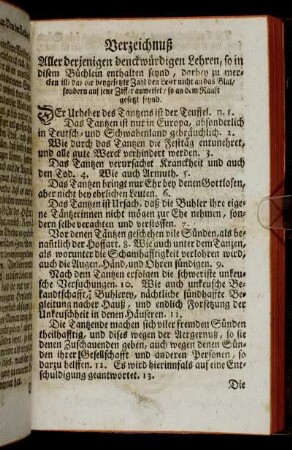 Verzeichnuß
Aller derjenigen denckwürdigen Lehren, so in
disem Büchlein enthalten seynd, darbey zu mer-
cken ist, daß die vorgesetzte Zahl den Leser nicht an das Blat,
sondern auf jene Ziffer anweiset, so an dem Rand
gesetzt seynd.
DEr Urheber des Tantzens ist der Teuffel. n. 1.
Das Tantzen ist nur in Europa, absonderlich
in Teutsch- und Schwabenland gebräuchlich. 2.
Wie durch das Tantzen die Festtäg entunehret,
und alle gute Werck verhindert werden. 3.
Das Tantzen verursachet Kranckheit und auch
den Tod. 4. Wie auch Armuth. 5.
Das Tantzen bringt nur Ehr bey denen Gottlosen,
aber nicht bey ehrlichen Leuten. 6.
Das Tantzen ist Ursach, daß die Buhler ihre eige-
ne Täntzerinnen nicht mögen zur Ehe nehmen, son-
dern selbe verachten und verstossen. 7.
Vor denen Täntzen geschehen vile Sünden, als be-
nanntlich der Hoffart. 8. Wie auch unter dem Tantzen,
als worunter die Schamhafftigkeit verlohren wird,
auch die Augen, Händ, und Ohren sündigen. 9.
Nach dem Tantzen erfolgen die schweriste unkeu-
sche Versuchungen. 10. Wie auch unkeusche Be-
kandtschafft, Buhlerey, nächtliche sündhaffte Be-
gleitung nacher Hauß, und endlich Fortsetzung der
Unkeuschheit in denen Häuseren. 11.
Die Tantzende machen sich viler fremden Sünden
theilhafftig, und dises wegen der Aergernuß, so sie
denen Zuschauenden geben, auch wegen denen Sün-
den ihrer Gesellschafft und anderen Personen, so
darzu helffen. 12. Es wird hierinnfals auf eine Ent-
schuldigung geantwortet. 13.
Die